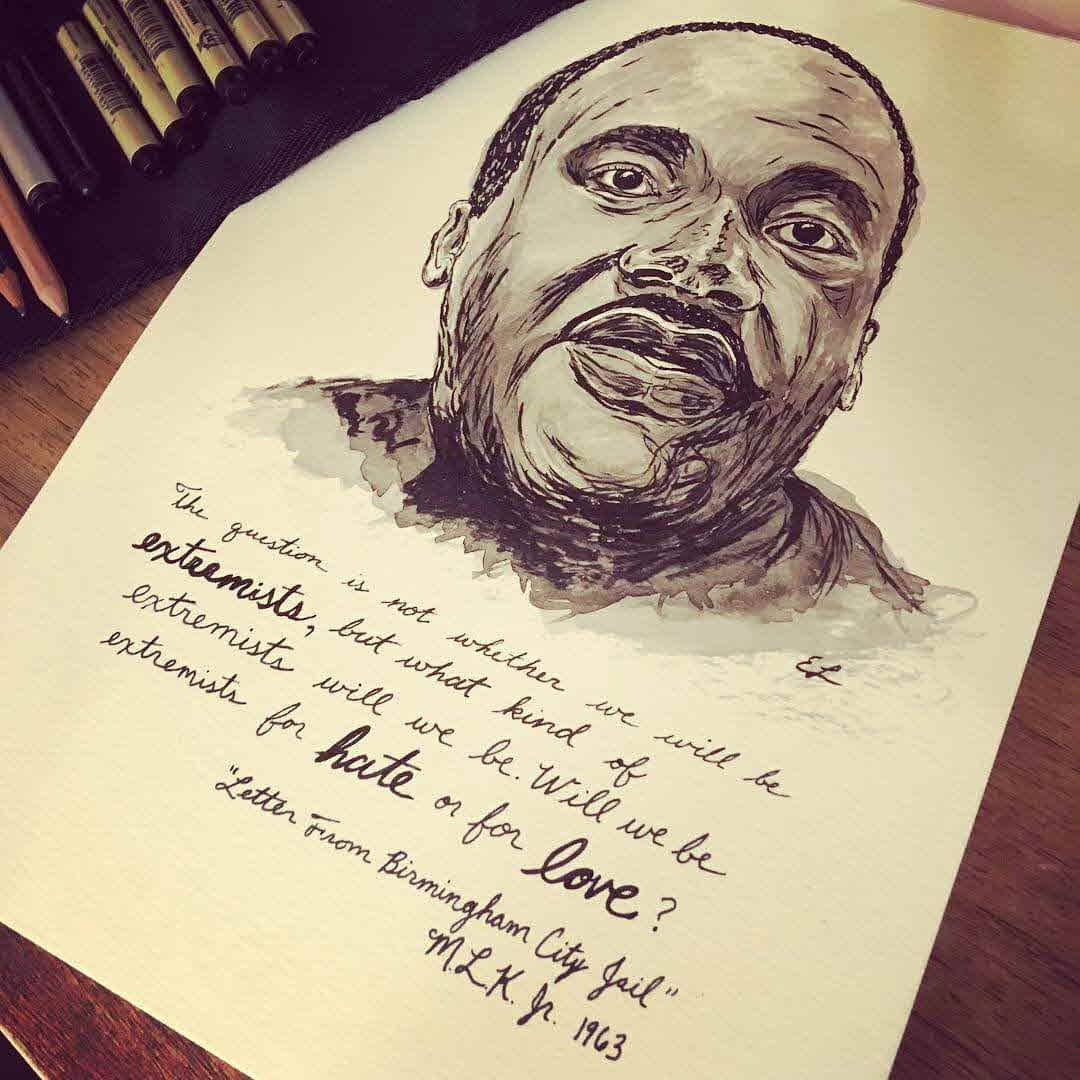 EL
The question is not whether we will be
extremists, but what kind of
extremists will we be. Will we be
extremists for hate or for love?
"Letter From Birmingham City Jail"
M.L.K. Jr. 1963